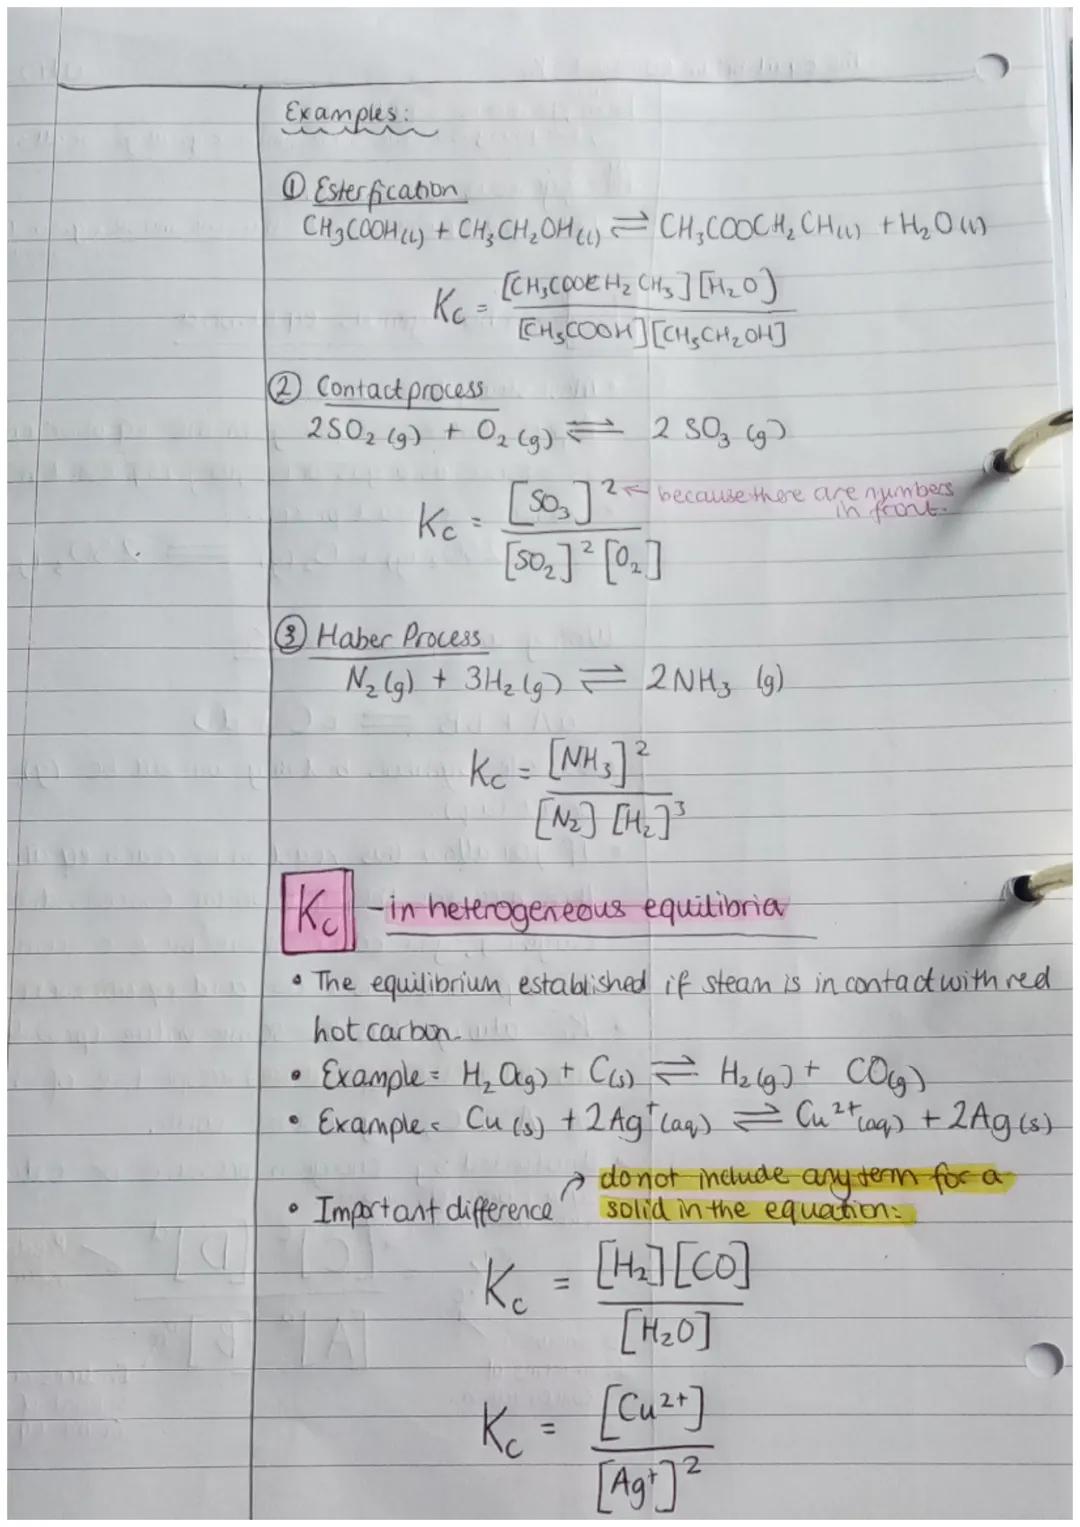 Examples:
① Esterfication
CH₃COOH(l) + CH₃CH₂OH(l) ⇌ CH₃COOCH₂CH(l) + H₂O(l)
Kc = [CH₃COOCH₂CH₃][H₂O) / [CH₃COOH][CH₃CH₂OH]
② Contact process
2SO₂(g) + O₂(g) ⇌ 2SO₃(g)
Kc = [SO₃]² / [SO₂]²[O₂] ← because there are numbers
in front.
③ Haber Process
N₂(g) + 3H₂(g) ⇌ 2NH₃ (g)
Kc = [NH₃]² / [N₂][H₂]³
Kc - in heterogeneous equilibria
• The equilibrium established if steam is in contact with red
hot carbon.
• Example = H₂O(g) + C(s) ⇌ H₂(g) + CO(g)
• Example = Cu(s) + 2Ag⁺(aq) ⇌ Cu²⁺(aq) + 2Ag(s)
• Important difference ↗ do not include any term for a
solid in the equation:
Kc = [H₂][CO] / [H₂O]
Kc = [Cu²⁺] / [Ag⁺]²